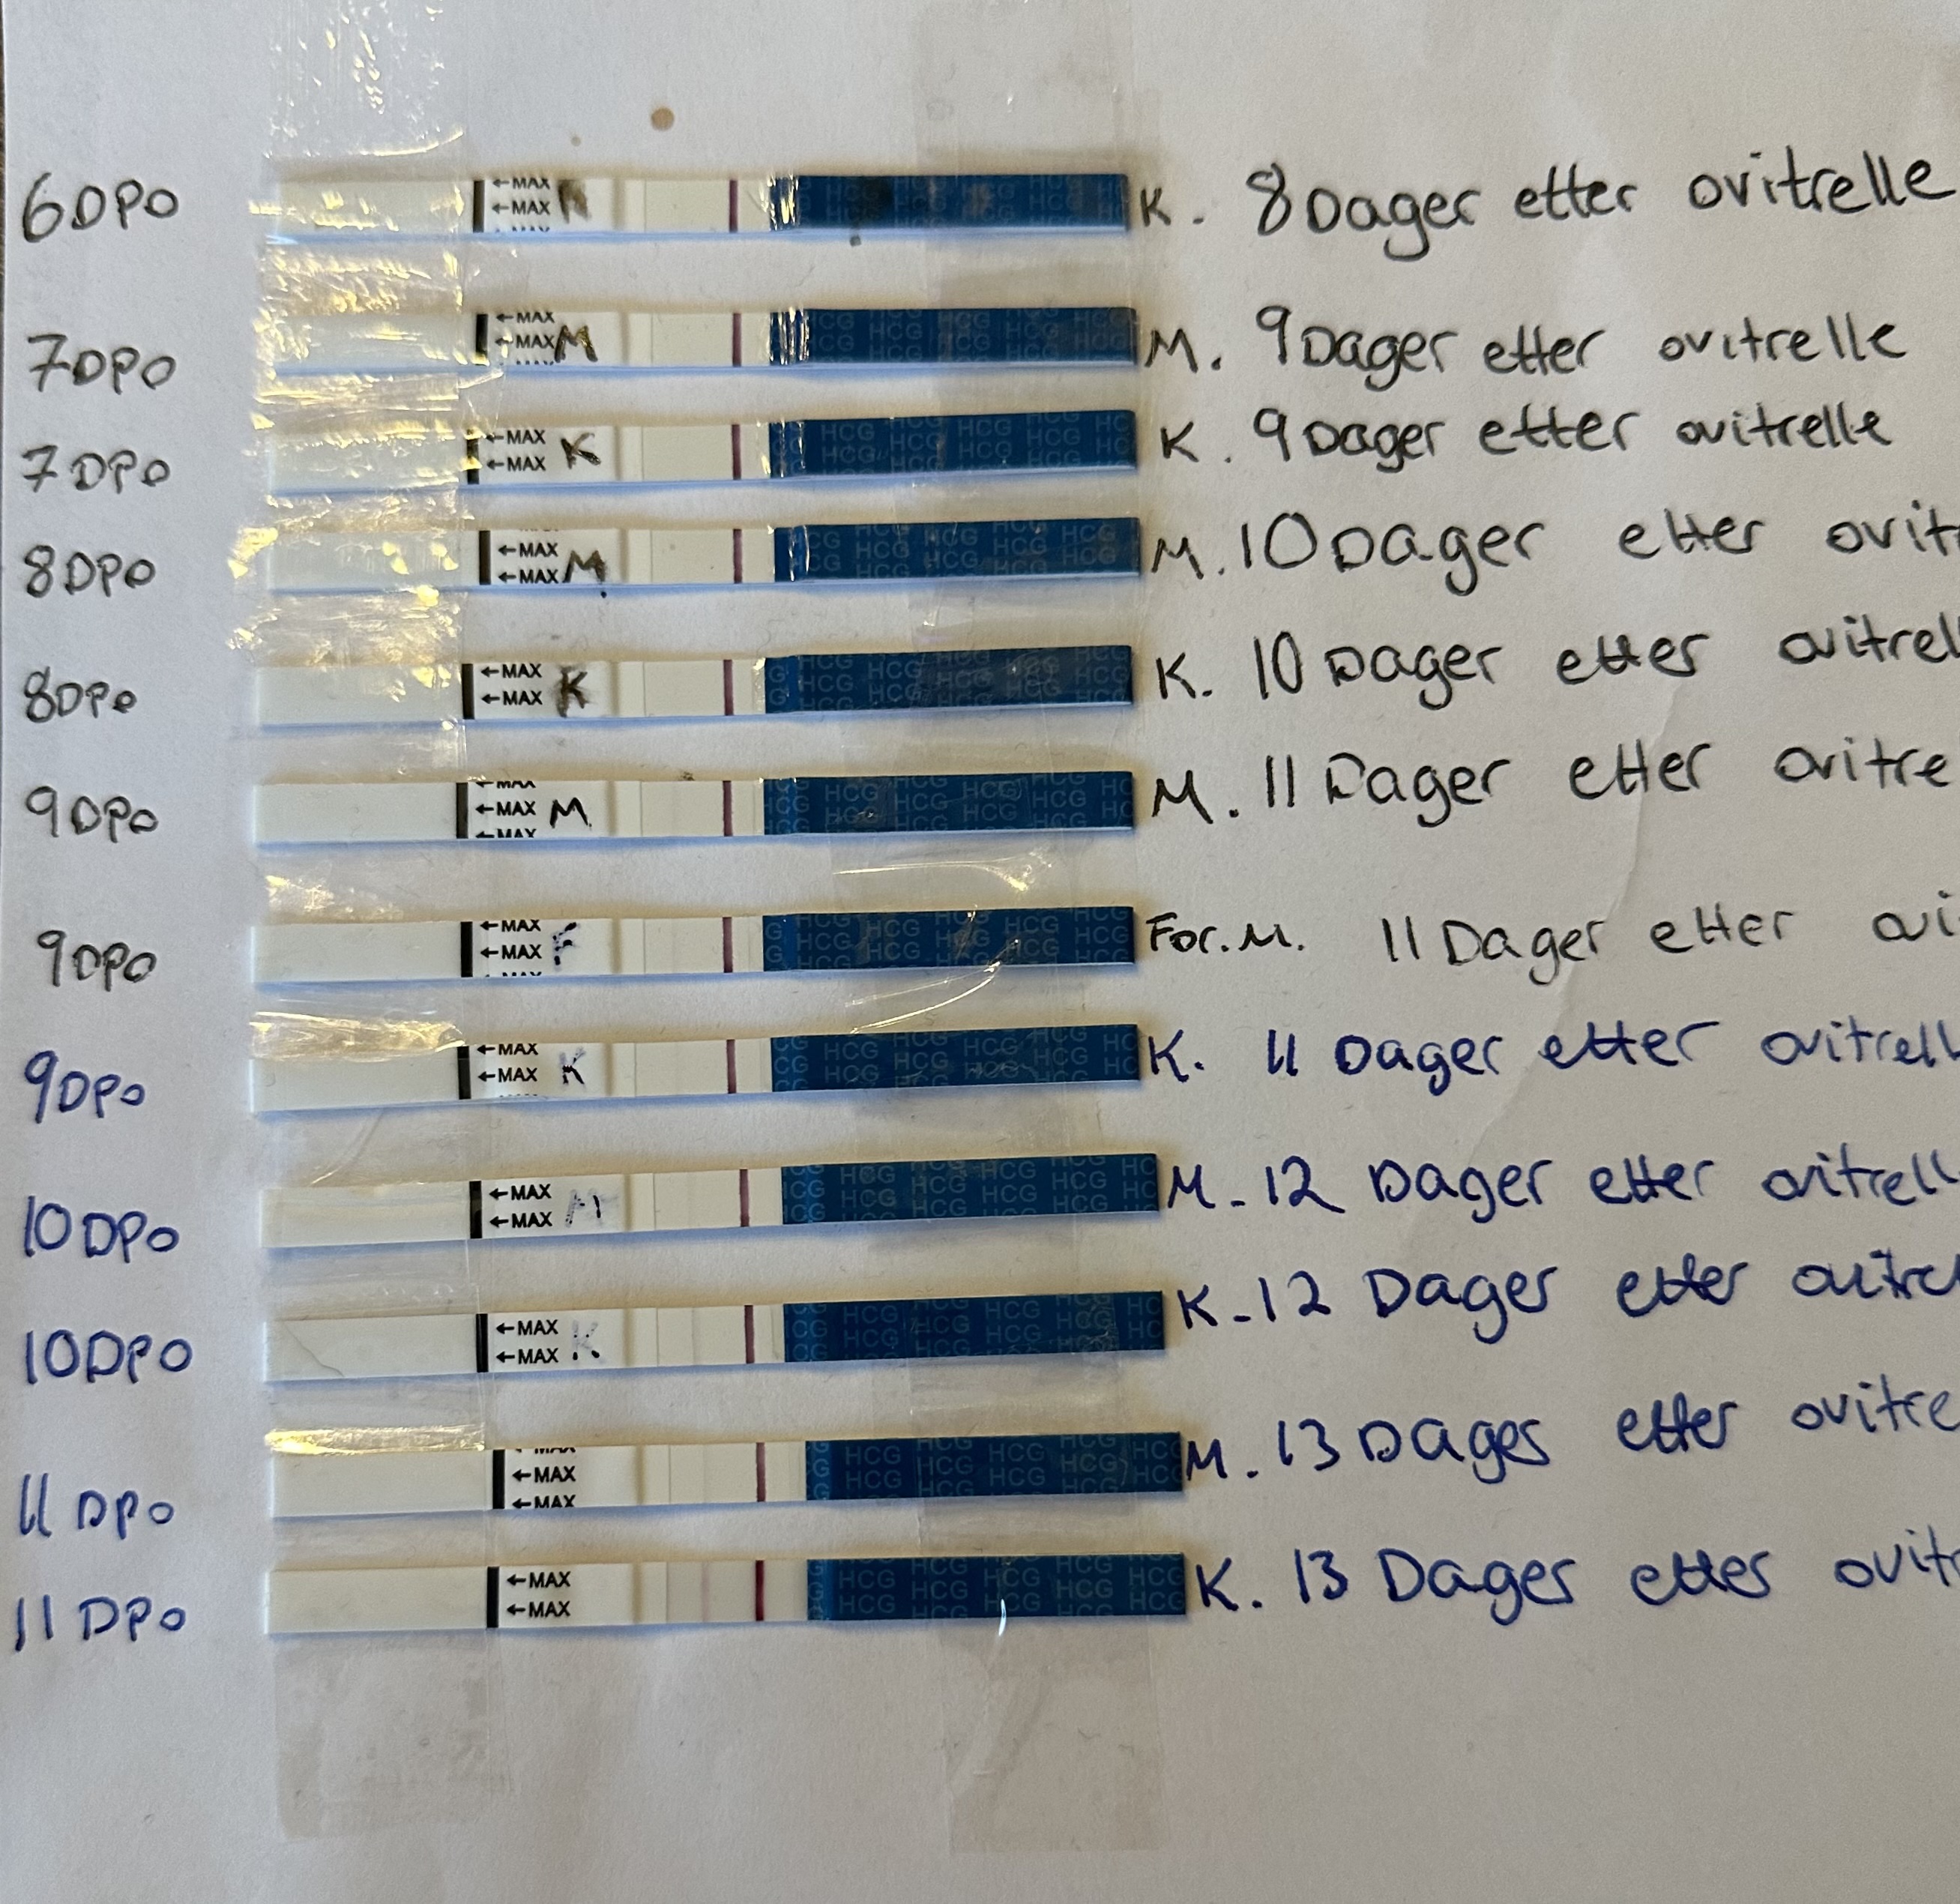 6DPO ←MAX ←MAX K HCG K. 8 Dager etter ovitrelle
7DPO ←MAX ←MAX M HCG M. 9 Dager etter ovitrelle
7DPO ←MAX ←MAX K HCG K. 9 Dager etter ovitrelle
8DPO ←MAX ←MAX M HCG M. 10 Dager etter ovit
8DPO ←MAX ←MAX K HCG K. 10 Dager etter ovitrell
9DPO ←MAX ←MAX ←MAX M HCG M. 11 Dager etter ovitre
9DPO ←MAX ←MAX F HCG For.M. 11 Dager etter ovi
9DPO ←MAX ←MAX K HCG K. 11 Dager etter ovitrell
10DPO ←MAX ←MAX M HCG M-12 Dager etter ovitrell
10DPO ←MAX ←MAX K HCG K-12 Dager etter ovitre
11DPO ←MAX ←MAX ←MAX HCG M. 13 Dager etter ovitre
11DPO ←MAX ←MAX HCG K. 13 Dager etter ovitr